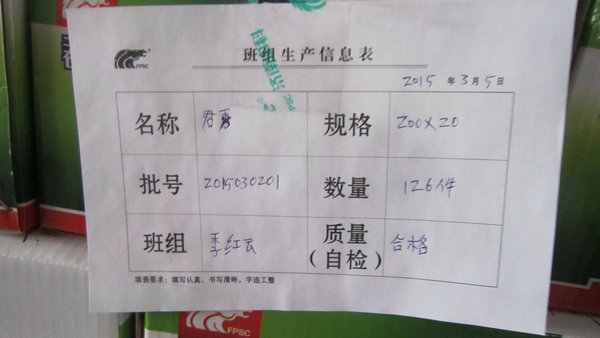 FPSC
班组生产信息表
2015年3月5日
名称 君 规格 200×20
批号 2015030201 数量 126件
班组 季红云 质量(自检) 合格
填表要求：填写认真，书写清晰，字迹工整
FPSC